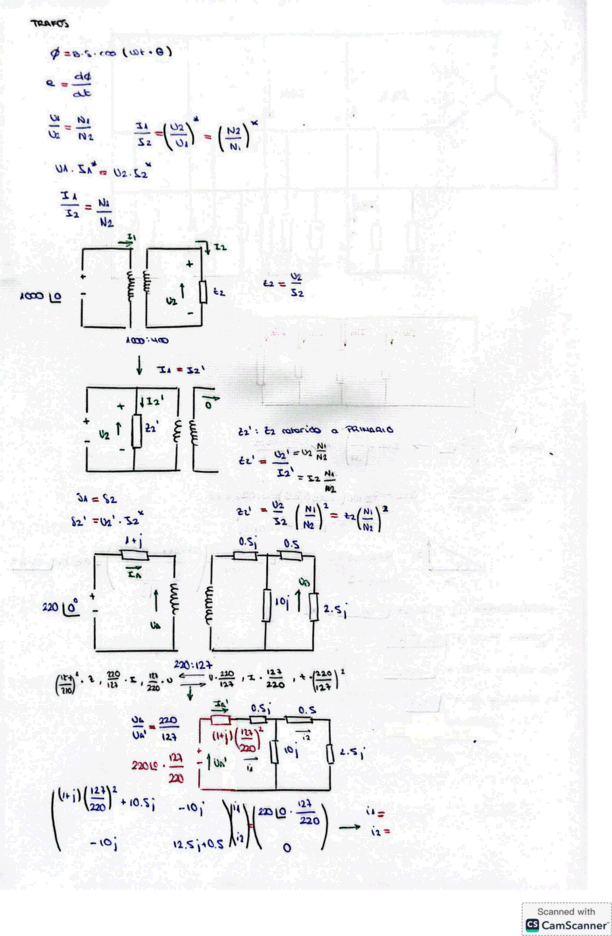 TRAFOS
ϕ = B·S·cos (ωt + θ)
e = dϕ/dt
U1/U2 = N1/N2    I1/I2 = (U2/U1)* = (N2/N1)*
U1·I1* = U2·I2*
I1/I2 = N1/N2
I1    I2
+ - 1000 |0    U2 ↑ + -    z2    z2 = U2/I2
1000:400
↓    I1 = I2'
+ -    + - U2 ↑    ↓ I2'    z2'    0
z2': z2 referido a PRIMARIO
z2' = U2'/I2'    = U2 N1/N2    = I2 N1/N2
z2' = U2/I2 (N1/N2)² = z2 (N1/N2)²
S2' = U2'·I2*
1+j    0.5j    0.5
220 |0°    + -    I1    10j    2.5j
220:127
220/127 · I, 127/220 · U ⇄ U·220/127, I·127/220, z·(220/127)²
↓    0.5j    0.5
220/127    (1+j)(127/220)²    10j    2.5j    i1    i2
220|0 · 127/220    + -
((1+j)(127/220)² + 10.5j    -10j    -10j    12.5j+0.5) (i1 i2) = (220|0 · 127/220    0) → i1 =    i2 =
Scanned with
CS CamScanner